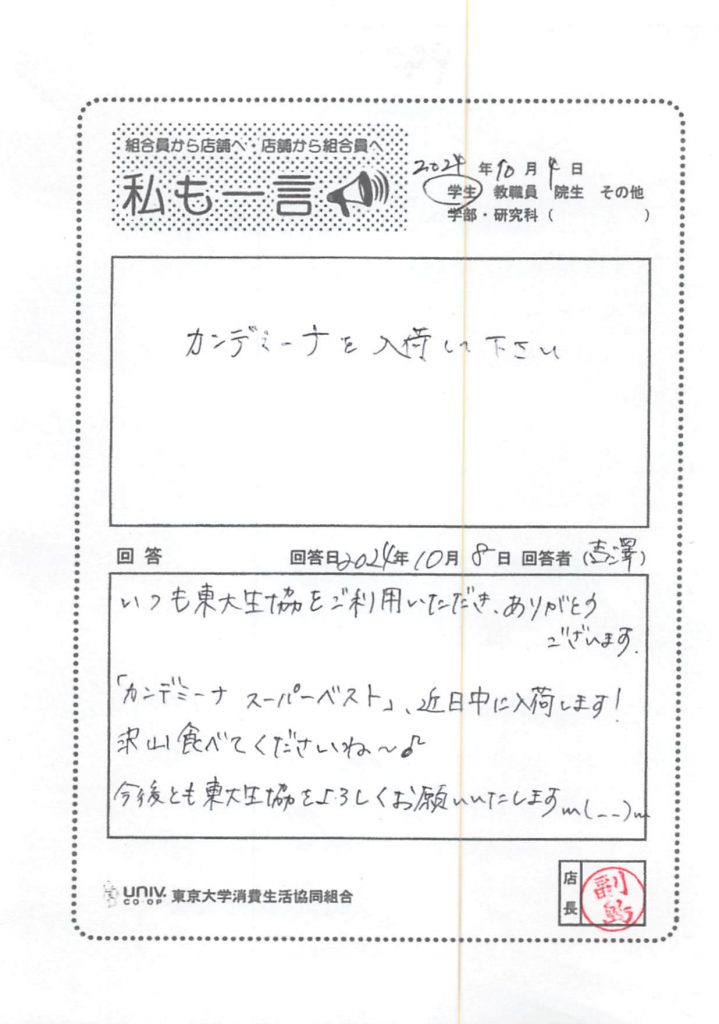 組合員から店舗へ・店舗から組合員へ
私も一言
2024年10月4日
学生 教職員 院生 その他
学部・研究科( )
カンデミーナを入荷して下さい
回答 回答日2024年10月8日 回答者(吉澤)
いつも東大生協をご利用いただき、ありがとう
ございます。
「カンデミーナ スーパーベスト」、近日中に入荷します!
沢山食べてくださいね〜♪
今後とも東大生協をよろしくお願いいたしますm(_ _)m
UNIV. CO-OP 東京大学消費生活協同組合
店長